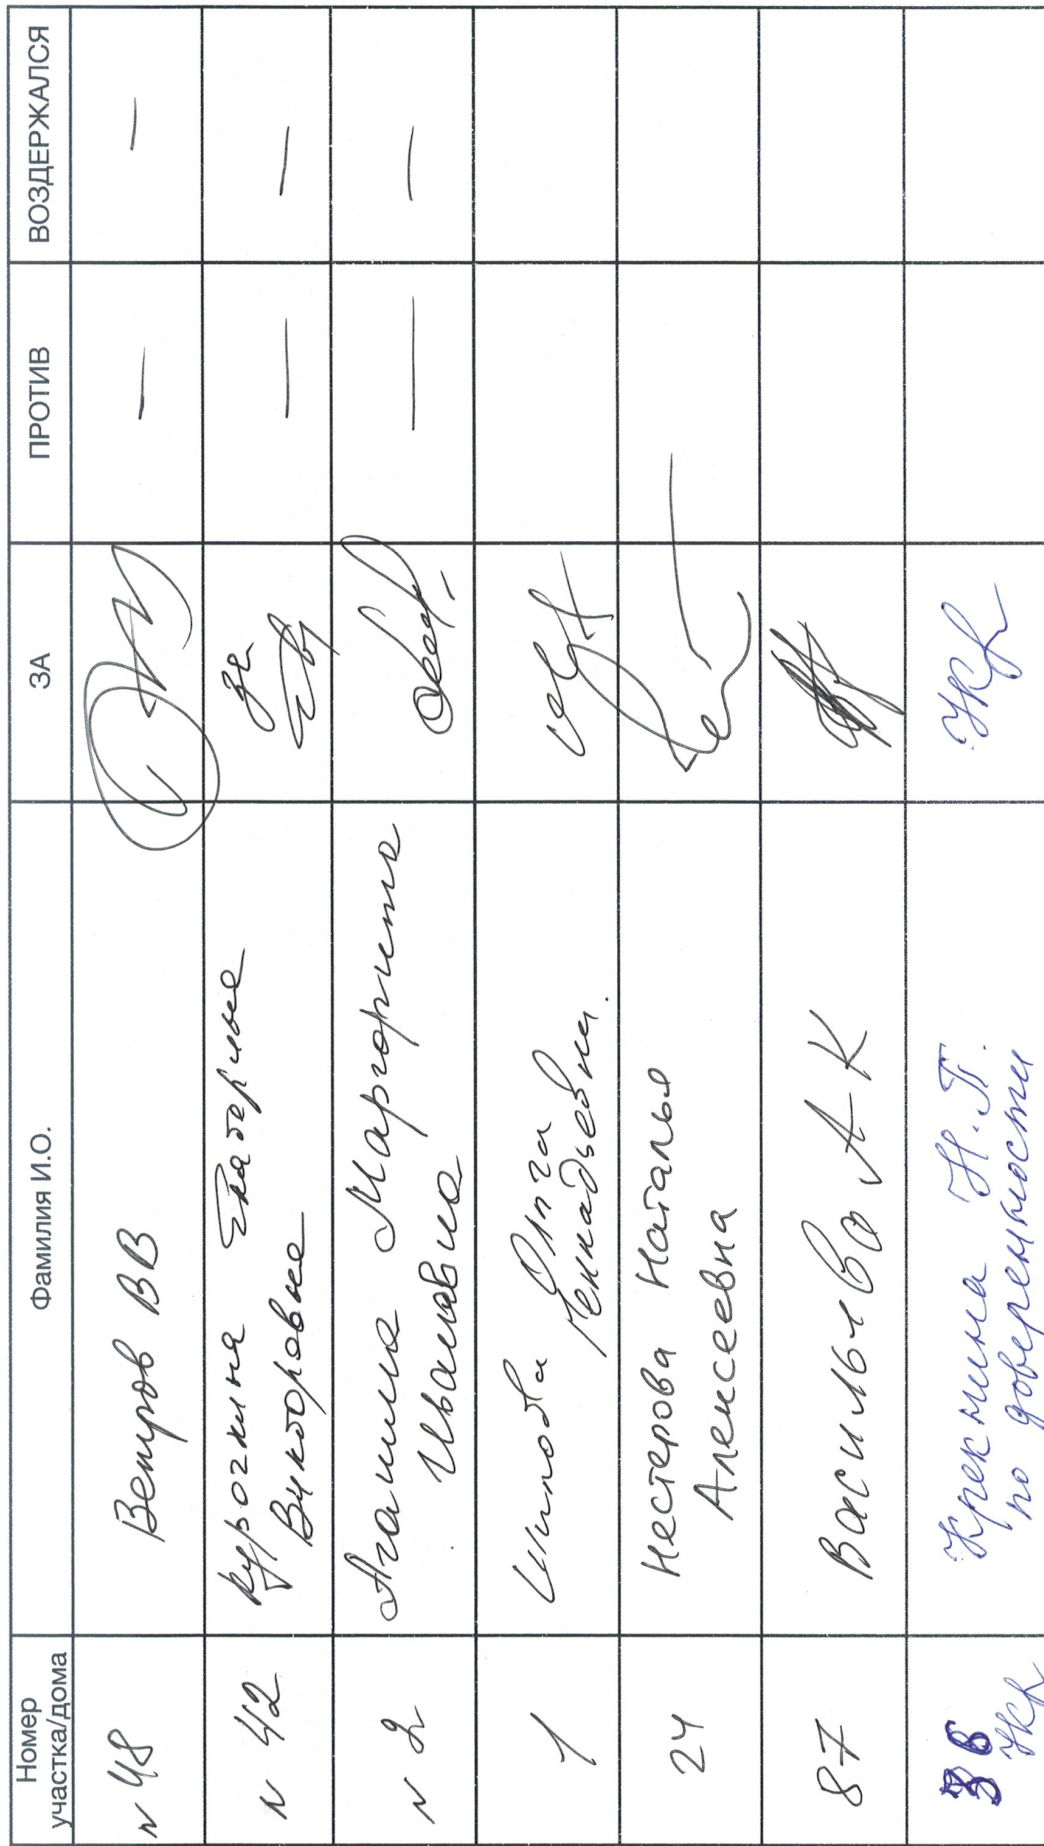 Номер участка/дома Фамилия И.О. ЗА ПРОТИВ ВОЗДЕРЖАЛСЯ
N 48 Ветров ВВ — —
N 42 Курочкина Екатерина
Викторовна
за — —
N 2 Агашина Маргорита
Ивановна
— —
1 Шипова Ольга
Генадьевна.
24 Нестерова Наталья
Алексеевна
87 Васильева А К
36 Крекнина Н.П.
по доверенности